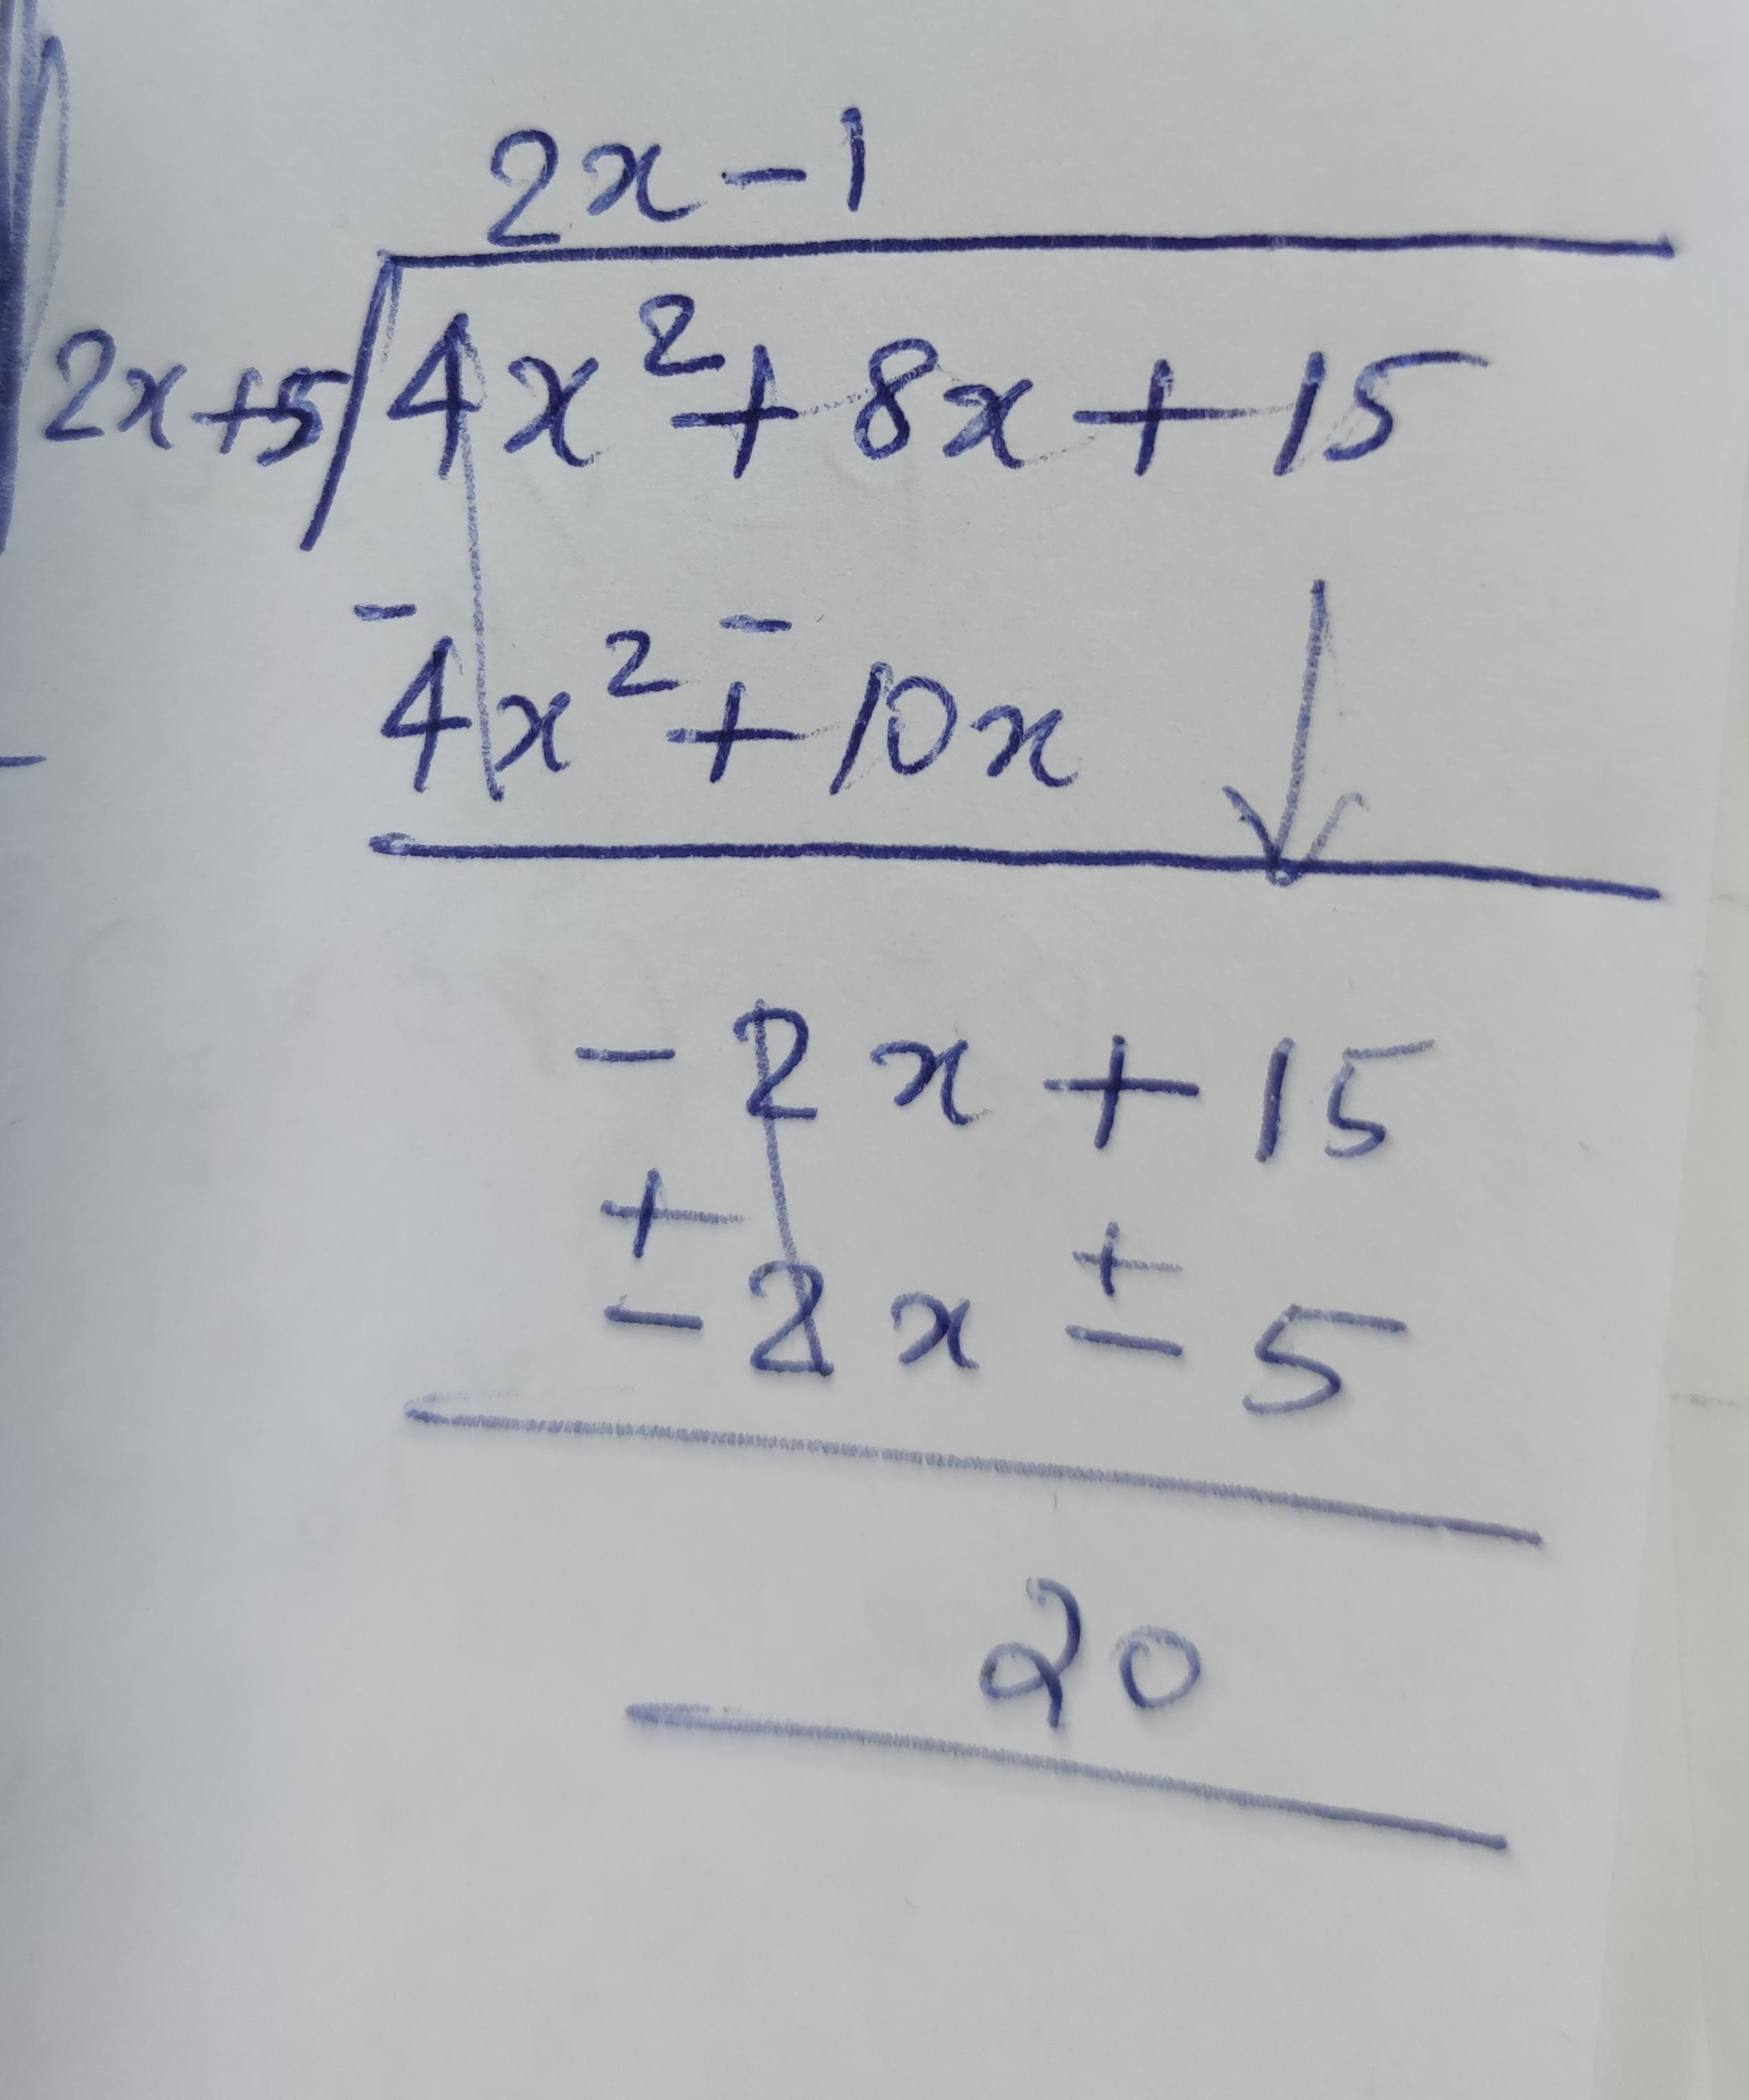 2x - 1
2x + 5 4x² + 8x + 15
- -
4x² + 10x
- 2x + 15
+ +
- 2x - 5
20